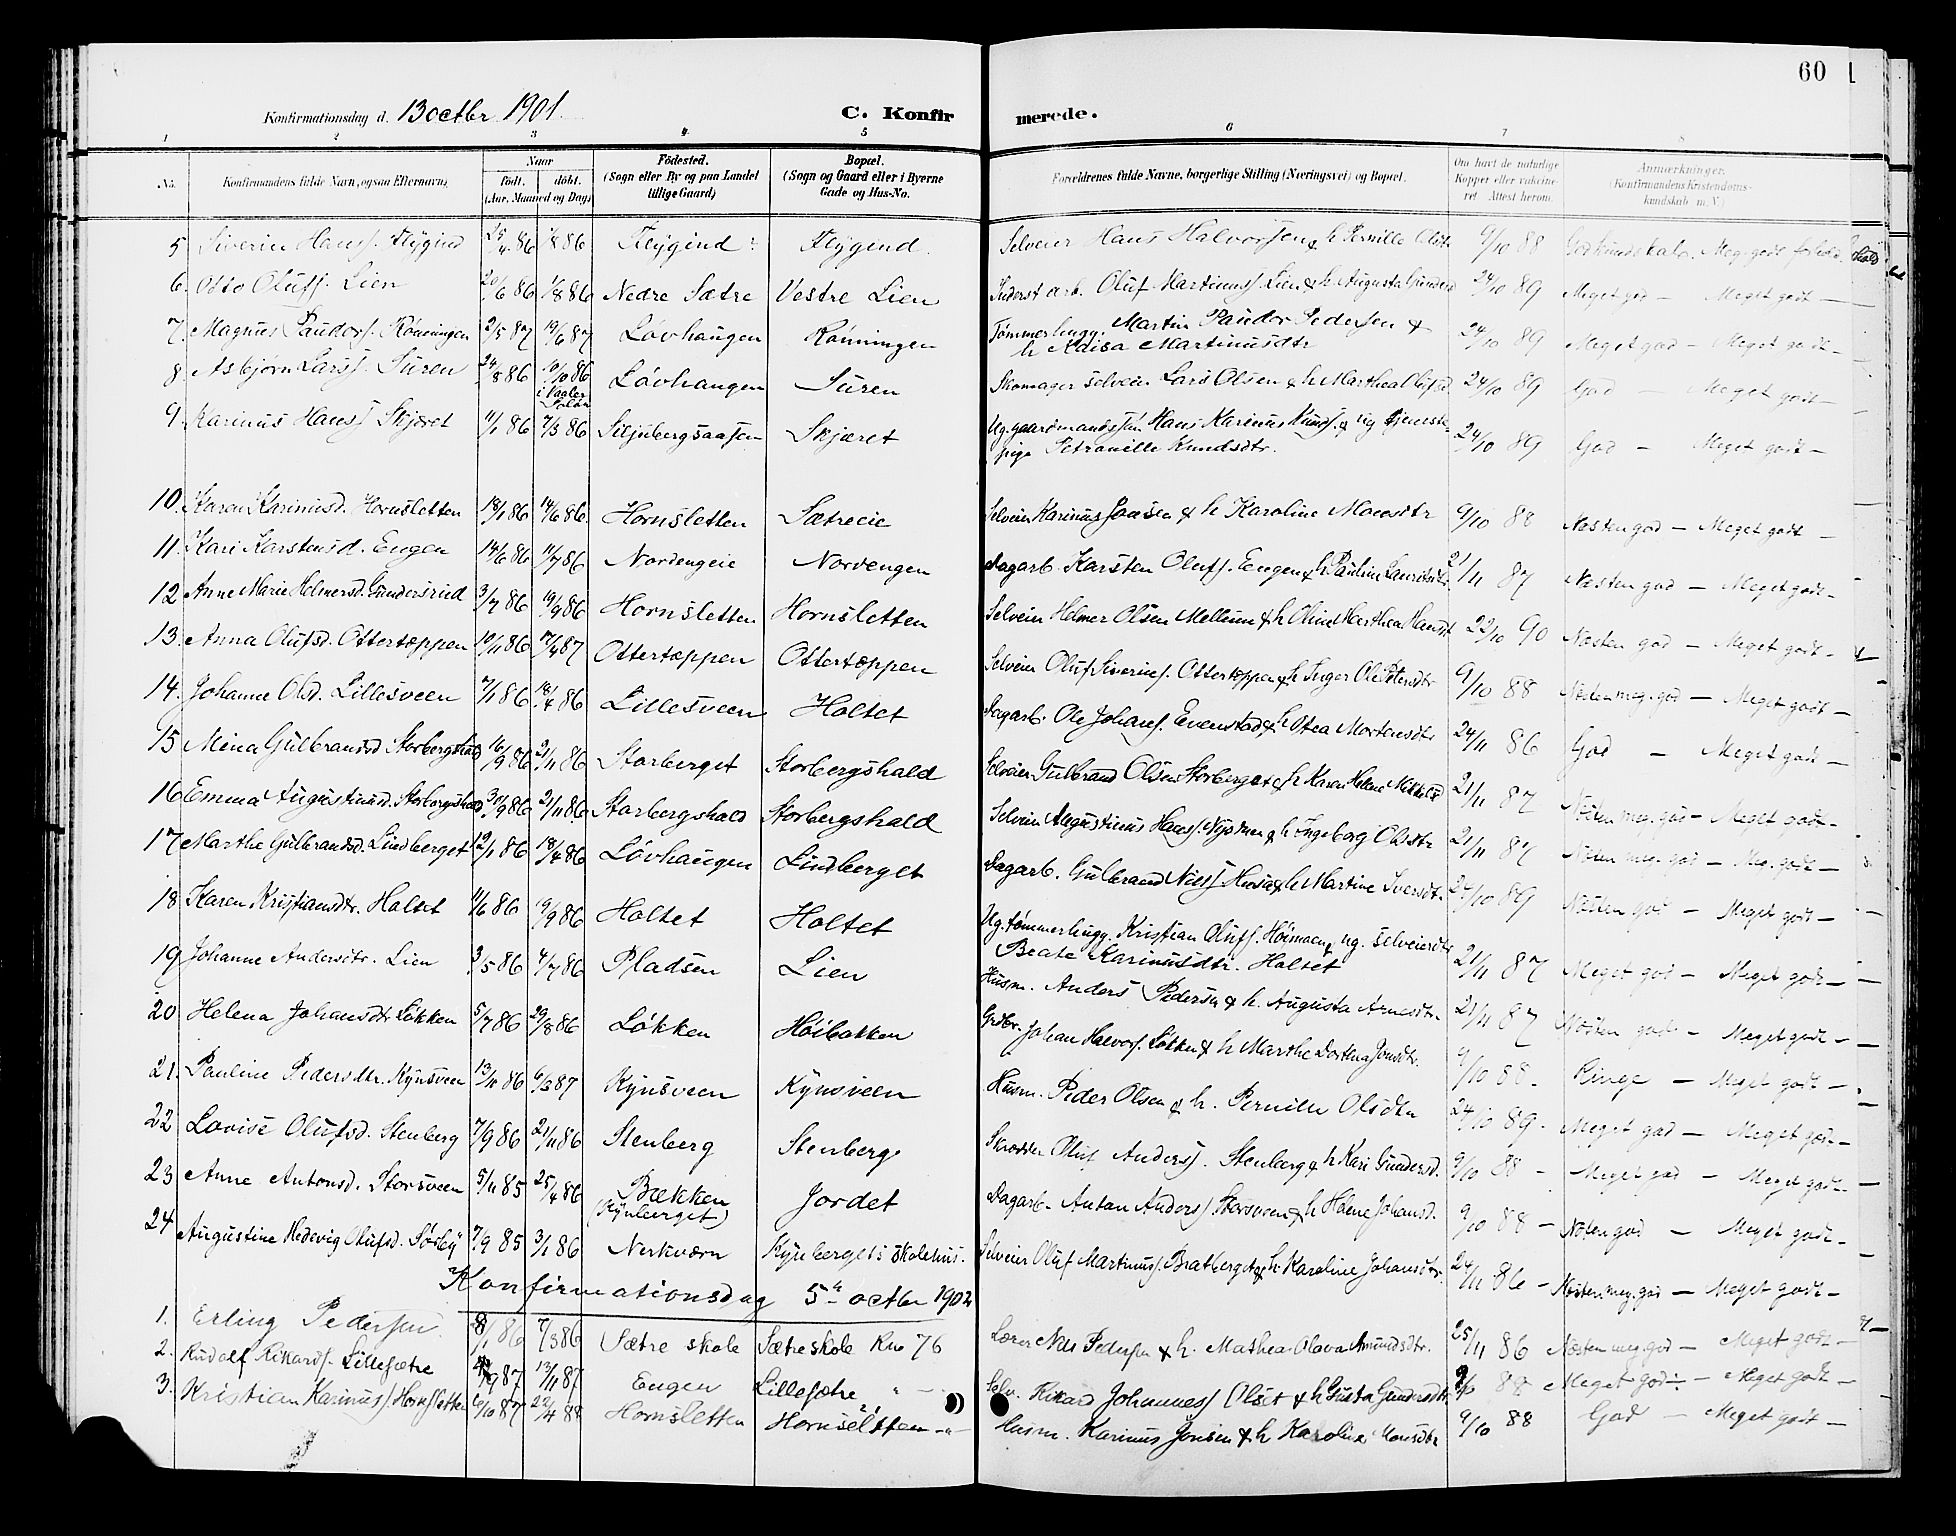 60
Konfirmationsdag d. 13 octbr 1901.
C. Konfirmerede.
1 2 3 4 5 6 7 8
No. Konfirmandens fulde Navn, ogsaa Efternavn. Naar Født. døbt. (Aar, Maaned og Dag) Fødested. (Sogn eller By og paa Landet tillige Gaard) Bopæl. (Sogn og Gaard eller i Byerne Gade og Hus-No. Forældrenes fulde Navne, borgerlige Stilling (Næringsvei) og Bopæl. Om havt de naturlige Kopper eller vakcineret. Attest herom. Anmærkninger. (Konfirmandens Kristendomskundskab m. V.)
5 Siverin Hanss. Flÿgind 25/4 86 1/8 86 Flÿgind Flÿgind. Selveier Hans Halvorsen & h Pernille 9/10 88 God kundskab. Meg. godt forhold
6. Otto Olufs. Lien 20/6 86 1/8 86 Nedre Sætre Vestre Lien Inderst arb. Oluf Martinuss. Lien & h Augusta 24/10 89 Meget god — Meget godt —
7. Magnus Paudors. Rönningen 2/5 87 19/6 87 Lövhaugen Rönningen Tömmerhugg. Martin Paudor Pedersen & h Kaisa Martinusdtr 24/10 89 Meget god — Meget godt —
8. Asbjörn Larss. Suren 24/8 86 10/10 86 i Vaaler Solör Lövhaugen Suren Skomager selveier Lars Olsen & h Marthea 24/10 89 God — Meget godt —
9 Karinus Hanss Skjæret 11/1 86 7/3 86 Siljubergsaasen Skjæret Ug. gaardmandssön Hans Karinus Knuds. & ug tjenestepige Petronille Knudsdtr. 24/10 89 God — Meget godt —
10. Karen Karinusd. Hornsletten 18/1 86 14/6 86 Hornsletten Sætreeie Selveier Karinus Jonsen & h Karoline Monsdtr 9/10 88 Næsten god — Meget godt —
11. Kari Karstensd. Engen 14/6 86 11/7 86 Nordengeie Nordengen Dagarb. Karsten Olufs. Engen & h Pauline Lauritsdtr 21/11 87 Næsten god — Meget godt —
12 Anne Marie Helmersd. Gundersrud 3/7 86 19/9 86 Hornsletten Hornsletten Selveier Helmer Olsen Mellum & h Oline Marthea Hansdt 22/10 90 Næsten god — Meget godt —
13. Anna Olufsd. Ottertoppen 10/11 86 7/4 87 Ottertoppen Ottertoppen Selveier Oluf Siverins. Ottertoppen & h Inger Petersdtr 9/10 88 Næsten meg. god — Meget godt —
14. Johanne Olsd. Lillesveen 7/1 86 18/4 86 Lillesveen Holtet Dagarb. Ole Johans. Evenstad & h Otea Mortensdtr 24/11 86 God — Meget godt —
15 Mina Gulbrandsd Storbergshald 16/9 86 21/11 86 Storberget Storbergshald Selveier Gulbrand Olsen Storberget & h Karen Helene Mikkelsd 21/11 87 Næsten meg. god — Meget godt —
16 Emma Augustinusd. Storbergshald 30/9 86 21/11 86 Storbergshald Storbergshald Selveier Augustinus Hans. & h Ingeborg Olsdtr 21/11 87 Næsten meg. god — Meg. godt —
17 Marthe Gulbrandsd. Lindberget 12/1 86 18/4 86 Lövhaugen Lindberget Dagarb. Gulbrand Nilss & h Martine Iversdtr. 24/10 89 Næsten god — Meget godt —
18 Karen Kristiansdtr. Holtet 11/6 86 19/9 86 Holtet Holtet Ug. tömmerhugg. Kristian Olufs. Höimoen & ug. selveierdtr Beate Karinusdtr. Holtet 21/11 87 Meget god — Meget godt —
19 Johanne Andersdtr. Lien 3/5 86 4/7 86 Pladsen Lien Husm. Anders Pedersen & h. Augusta Arnesdtr. 21/11 87 Næsten god — Meget godt —
20 Helena Johansdtr Løkken 5/7 86 29/8 86 Løkken Höibakken Grdbr. Johan Halvors. Løkken & h Marthe Dorthea Jonsdtr. 9/10 88. Ringe — Meget godt —
21. Pauline Pedersdtr. Kÿnsveen 13/11 86 6/3 87 Kÿnsveen Kÿnsveen Husm. Peder Olsen & h. Pernille Olsdtr 24/10 89. Meget god — Meget godt —
22 Lovise Olufsd. Stenberg 7/9 86 21/11 86 Stenberg Stenberg Skrædder Oluf Anderss. Stenberg & h Kari Gundersd. 9/10 88 — Meget god — Meget godt —
23 Anne Antonsd. Storsveen 5/11 85 25/4 86 Bækken (Kÿnberget) Jordet Dagarb. Anton Anderss Storsveen & h Helene Johansd. 9/10 88 — Næsten god — Meget godt —
24 Augustine Hedevig Olufsd. Sörbÿ 7/9 85 3/1 86 Nerkværn Kÿnbergets skolehus. Selveier Oluf Martinuss. Bratberget & h. Karoline Johansdtr. 24/11 86 — Næsten meg. god — Meget godt —
Konfirmationsdag 5te octbr 1902
1. Erling Pedersen 28/1 86 7/3 86 Sætre skole Sætre skole Kno 76 Lærer Nils Pedersen & h. Mathea Olava Amundsdtr. 25/11 86 Næsten meg. god — Meget godt —
2. Rudolf Rikards. Lillesætre 9 87 13/11 87 Engen Lillesætre " Selv. Rikard Johanness Olset & h Gusta Gundersdtr 9/10 88 Meget god — Meget godt —
3. Kristian Karinuss. Hornsletten 6/10 87 22/4 88 Hornsletten Hornseletten " Husm. Karinus Jonsen & h Karoline Monsdtr 9/10 88 God — Meget godt —